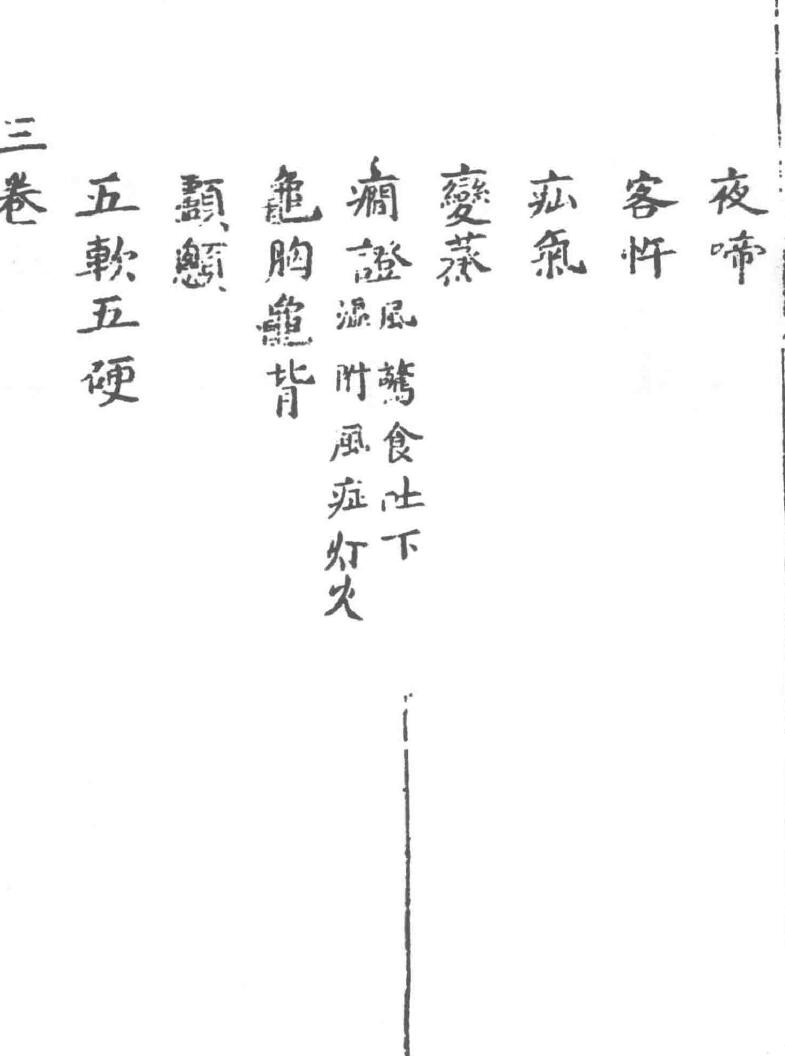 夜啼
客忤
疝氣
變蒸
癇證
風驚食吐下
附風症灯火
龜胸龜背
五軟五硬
三卷